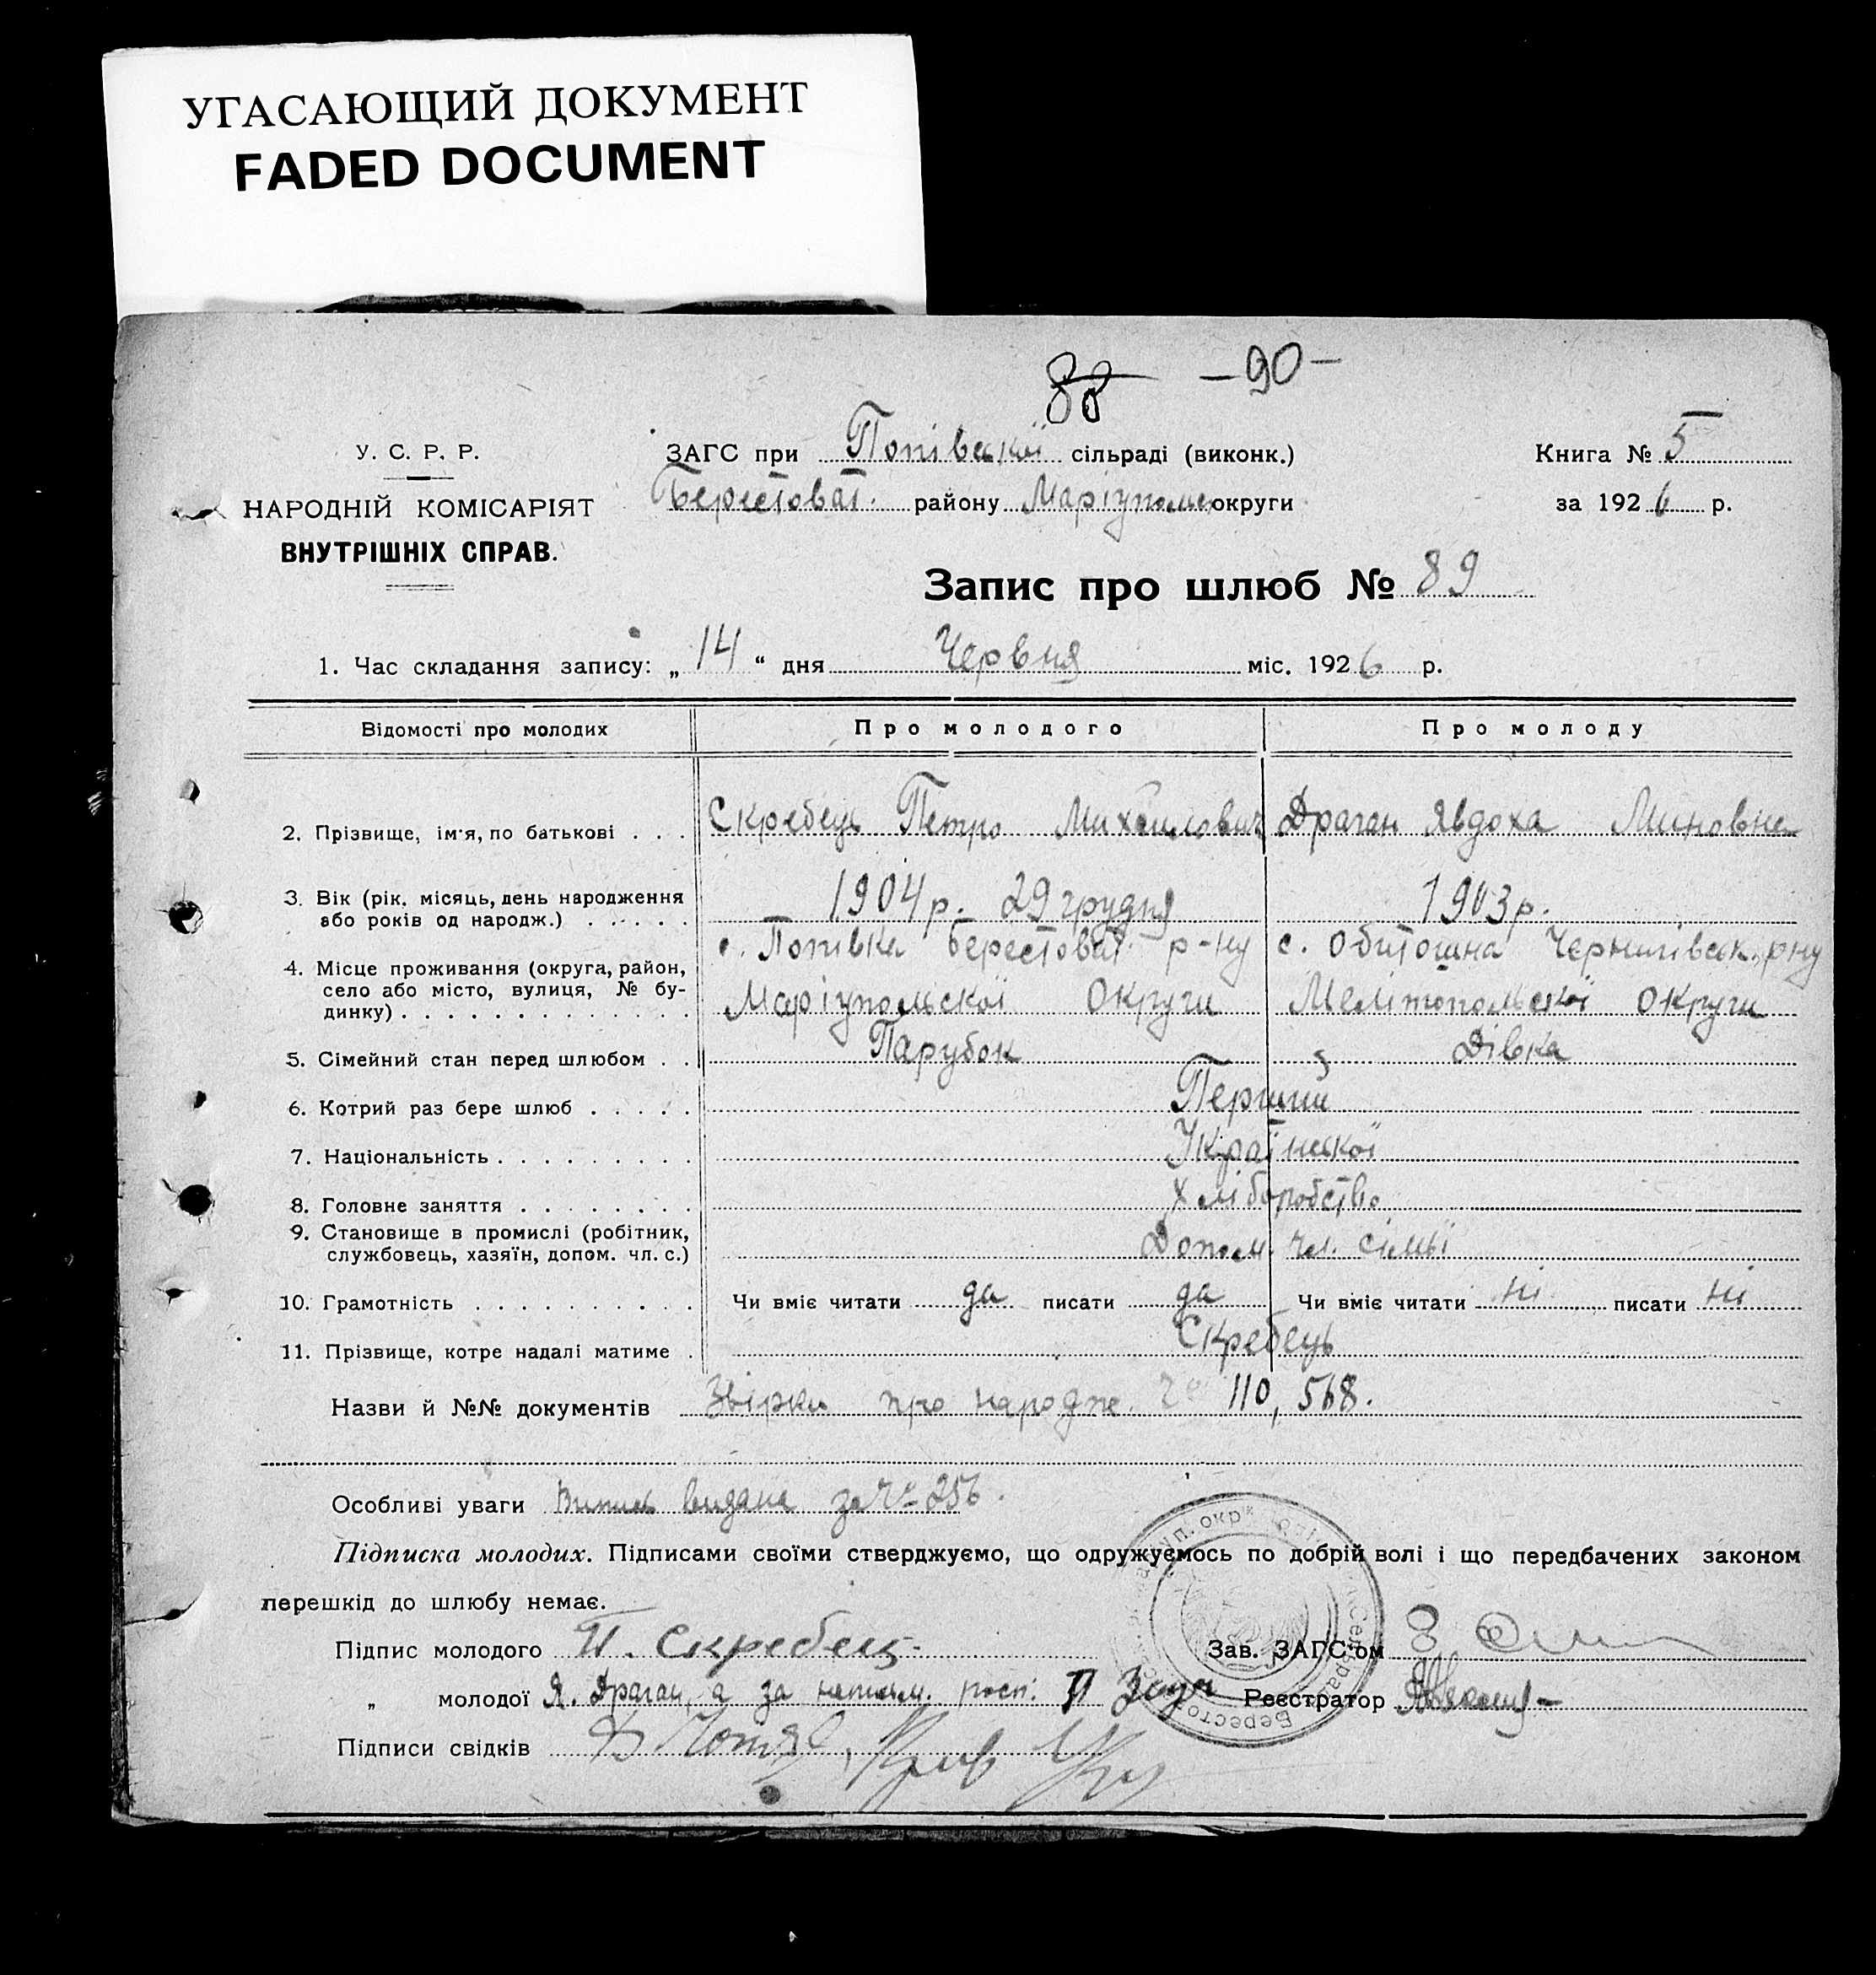 УГАСАЮЩИЙ ДОКУМЕНТ
FADED DOCUMENT
88 – 90 –
У. С. Р. Р.
НАРОДНІЙ КОМІСАРІЯТ
ВНУТРІШНІХ СПРАВ.
ЗАГС при Попівській сільраді (виконк.)
Берестоват. району Маріупольс округи
Книга № 5
за 1926 р.
Запис про шлюб № 89
1. Час складання запису: „ 14 “ дня Червня міс. 1926 р.
Відомості про молодих Про молодого Про молоду
2. Прізвище, ім'я, по батькові . . . Скребець Петро Михайлович Драган Явдоха Миновна
3. Вік (рік, місяць, день народження
або років од народж.) . . . . . – 1904 р. – 29 грудня 1903 р.
4. Місце проживання (округа, район,
село або місто, вулиця, № бу-
динку) . . . . . . . . . . . . .
с. Попівка Берестоват. р-ну с. Обиточна Чернигівськ. р-ну
Маріупольскої Округи Мелітопольської Округи
5. Сімейний стан перед шлюбом . . Парубок Дівка
6. Котрий раз бере шлюб . . . . . Перший
7. Національність . . . . . . . . . Українскої
8. Головне заняття . . . . . . . . Хліборобство
9. Становище в промислі (робітник,
службовець, хазяїн, допом. чл. с.) Допом. чл. сімьї
10. Грамотність . . . . . . . . . . Чи вміє читати да писати да Чи вміє читати ні писати ні
11. Прізвище, котре надалі матиме . Скребець
Назви й №№ документів про народже. 110, 568.
Особливі уваги Випись видана за № 256.
Підписка молодих. Підписами своїми стверджуємо, що одружуємось по добрій волі і що передбачених законом
перешкід до шлюбу немає.
Підпис молодого П. Скребец Зав. ЗАГС'ом
„ молодої Я. Драган, а за неписьм. росп. Реєстратор
Підписи свідків